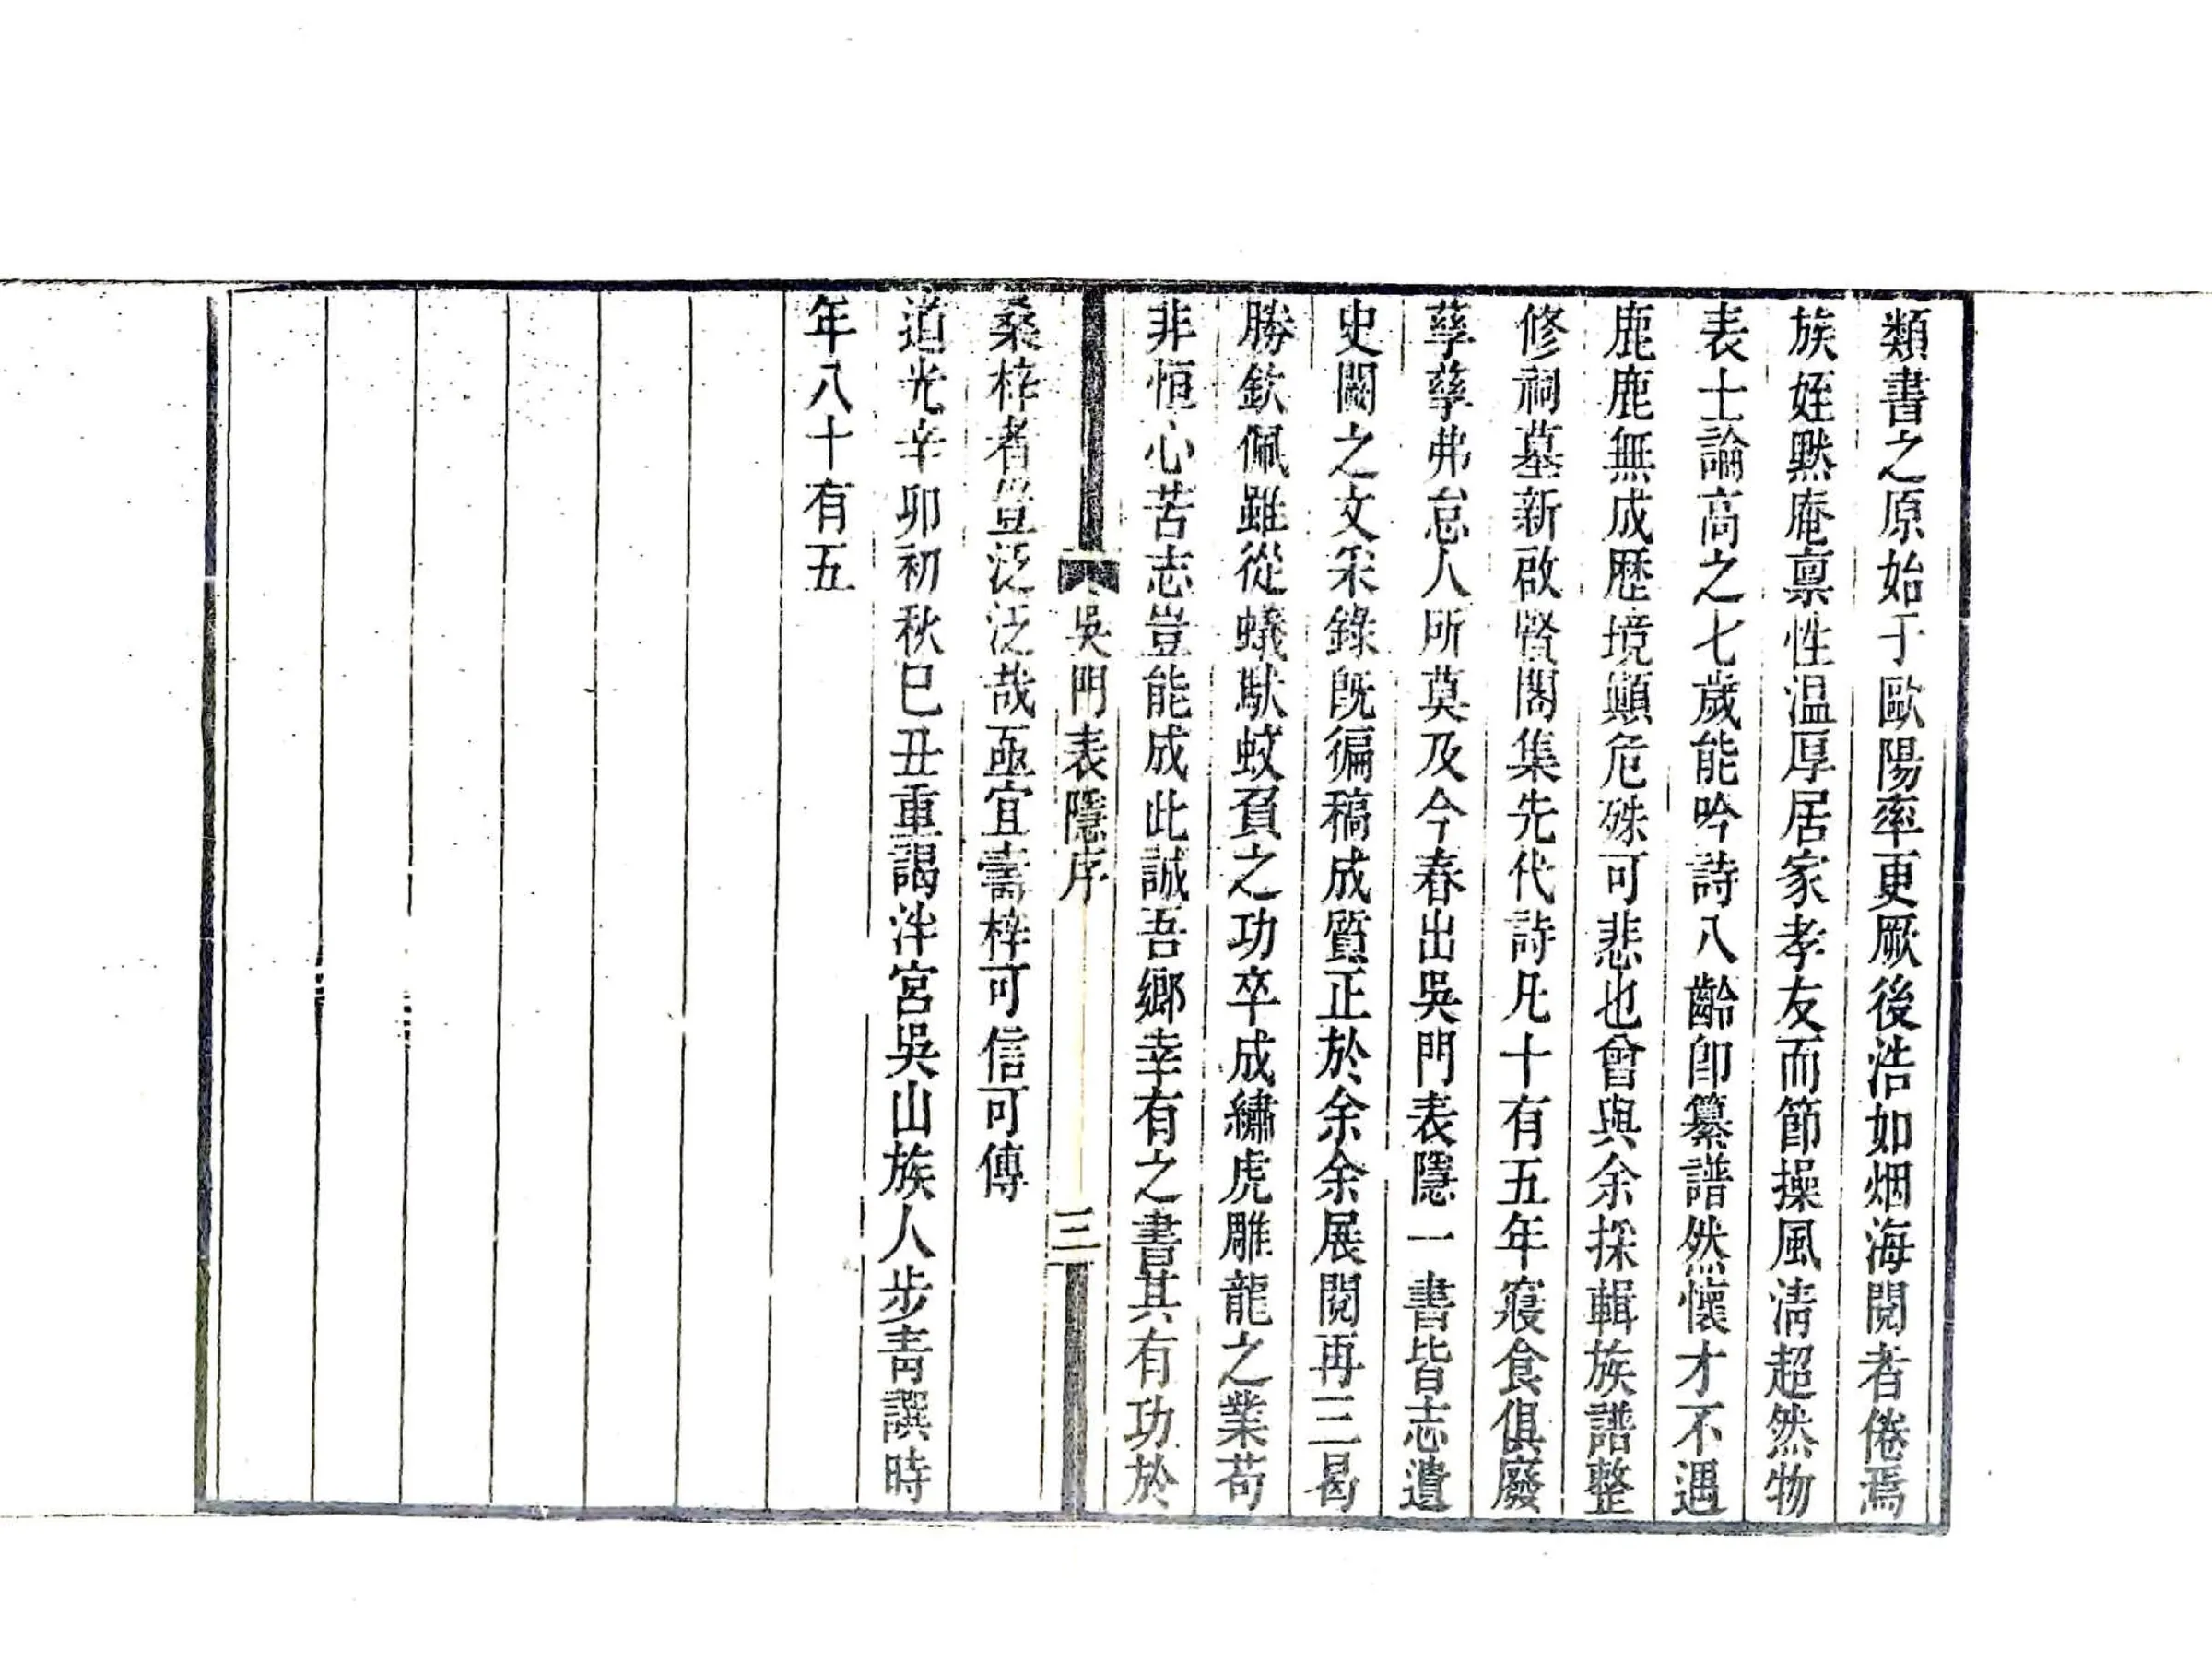 類書之原始于歐陽率更厥後浩如烟海閱者倦焉
族姪默庵禀性温厚居家孝友而節操風清超然物
表士論高之七歲能吟詩八齡卽纂譜然懷才不遇
鹿鹿無成歷境顛危殊可悲也曾與余採輯族譜整
修祠墓新啟賢閣集先代詩凡十有五年寢食俱廢
孳孳弗怠人所莫及今春出吳門表隱一書皆志遺
史闕之文采錄旣徧稿成質正於余余展閱再三曷
勝欽佩雖從蟻馱蚊負之功卒成繡虎雕龍之業苟
非恒心苦志豈能成此誠吾鄉幸有之書其有功於
吳門表隱序
三
桑梓者豈泛泛哉亟宜壽梓可信可傳
道光辛卯初秋巳丑重謁泮宮吳山族人步青譔時
年八十有五